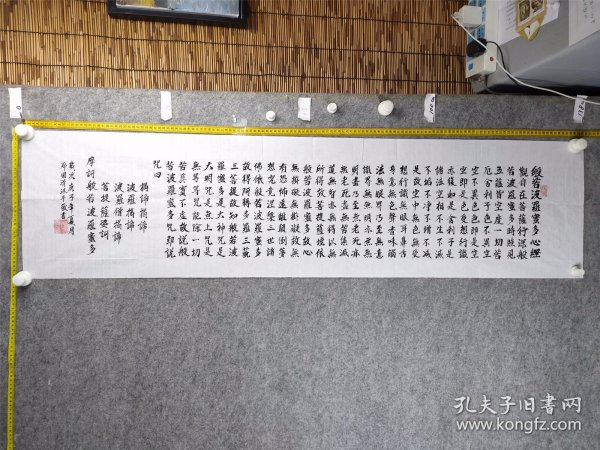 般若波羅蜜多心經
觀自在菩薩行深般
若波羅蜜多時照見
五蘊皆空度一切苦
厄舍利子色不異空
空不異色色即是空
空即是色受想行識
亦復如是舍利子是
諸法空相不生不滅
不垢不淨不增不減
是故空中無色無受
想行識無眼耳鼻舌
身意無色聲香味觸
法無眼界乃至無意
識界無無明亦無無
明盡乃至無老死亦
無老死盡無苦集滅
道無智亦無得以無
所得故菩提薩埵依
般若波羅蜜多故心
無掛礙無掛礙故無
有恐怖遠離顛倒夢
想究竟涅槃三世諸
佛依般若波羅蜜多
故得阿耨多羅三藐
三菩提故知般若波
羅蜜多是大神咒是
大明咒是無上咒是
無等等咒能除一切
苦真實不虛故說般
若波羅蜜多咒即說
咒曰
揭諦揭諦
波羅揭諦
波羅僧揭諦
菩提薩婆訶
摩訶般若波羅蜜多
歲次庚子年夏月
敬書
孔夫子旧书网
www.kongfz.com